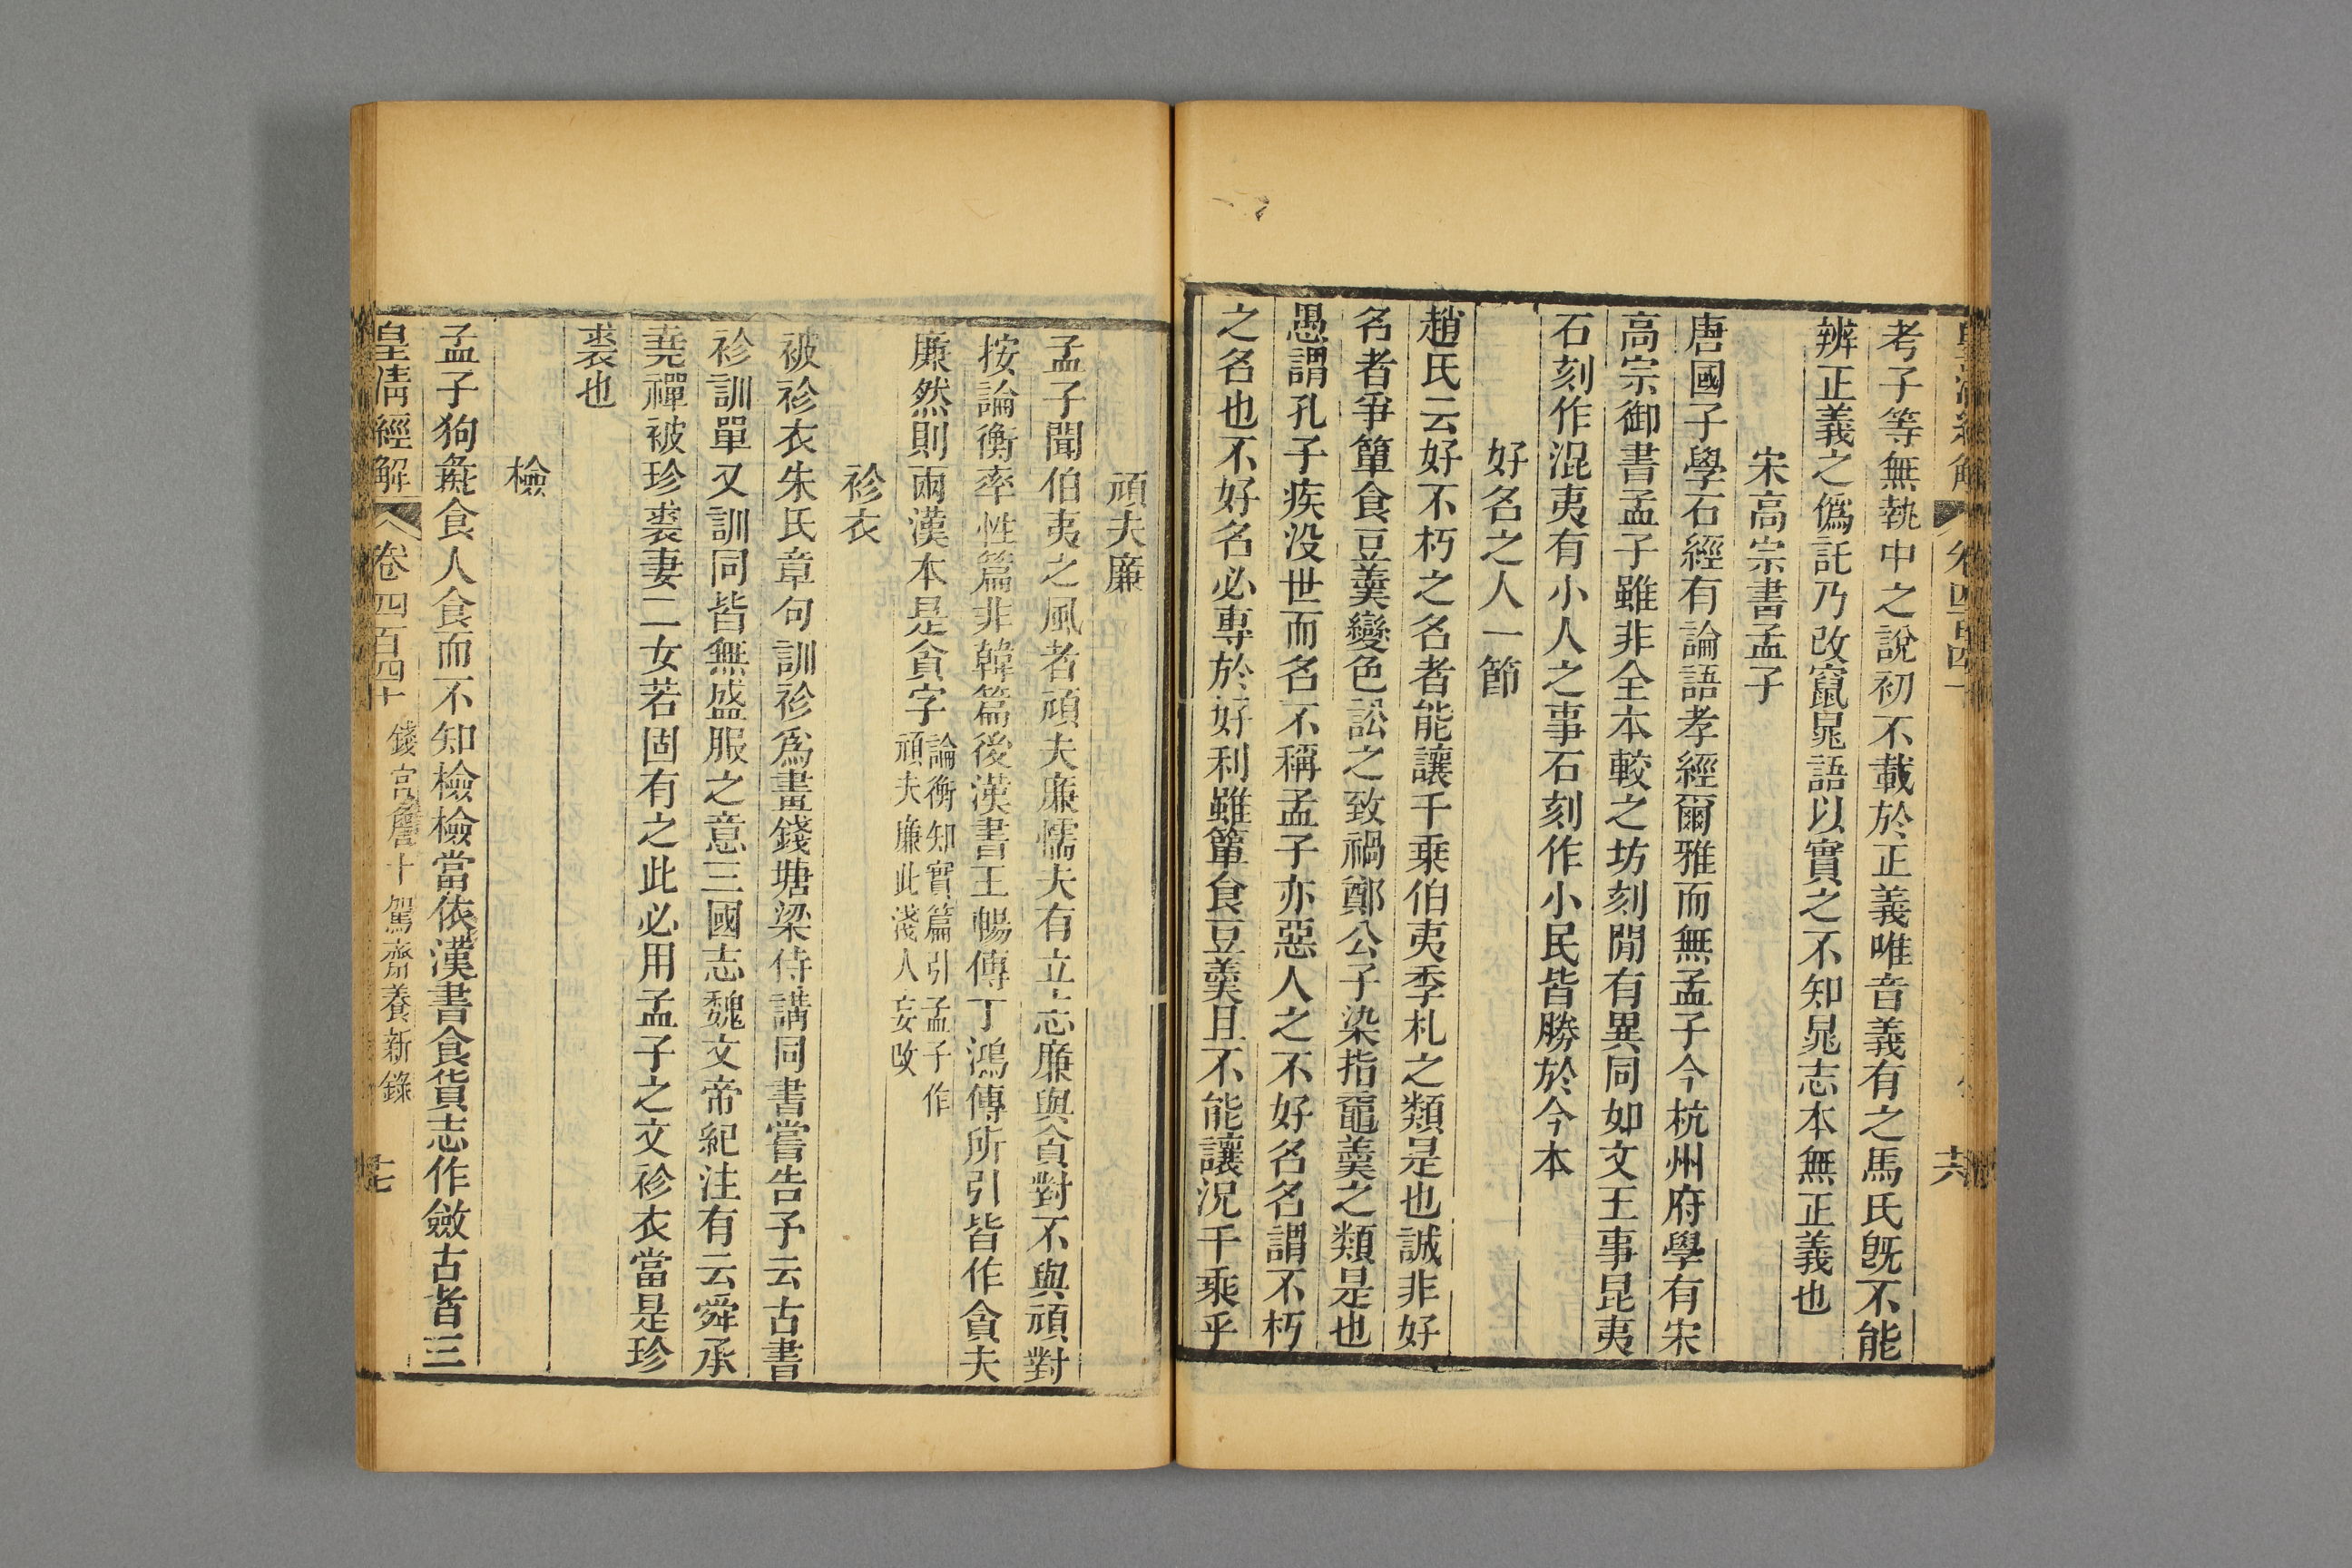 考子等無執中之說初不載於正義唯音義有之馬氏旣不能
辨正義之僞託乃改竄晁語以實之不知晁志本無正義也
宋高宗書孟子
唐國子學石經有論語孝經爾雅而無孟子今杭州府學有宋
高宗御書孟子雖非全本較之坊刻閒有異同如文王事昆夷
石刻作混夷有小人之事石刻作小民皆勝於今本
好名之人一節
趙氏云好不朽之名者能讓千乗伯夷季札之類是也誠非好
名者爭簞食豆羹變色訟之致禍鄭公子染指黿羹之類是也
愚謂孔子疾没世而名不稱孟子亦惡人之不好名名謂不朽
之名也不好名必專於好利雖簞食豆羹且不能讓況千乘乎
十六
頑夫廉
孟子聞伯夷之風者頑夫廉懦夫有立志廉與貪對不與頑對
按論衡率性篇非韓篇後漢書王暢傳丁鴻傳所引皆作貪夫
廉然則兩漢本是貪字論衡知實篇引孟子作
頑夫廉此淺人妄改
袗衣
被袗衣朱氏章句訓袗爲畫錢塘梁侍講同書嘗告予云古書
袗訓單又訓同皆無盛服之意三國志魏文帝紀注有云舜承
堯禪被珍裘妻二女若固有之此必用孟子之文袗衣當是珍
裘也
檢
孟子狗彘食人食而不知檢檢當依漢書食貨志作斂古者三
皇清經解 卷四百四十 錢宮詹十駕齋養新錄 十七